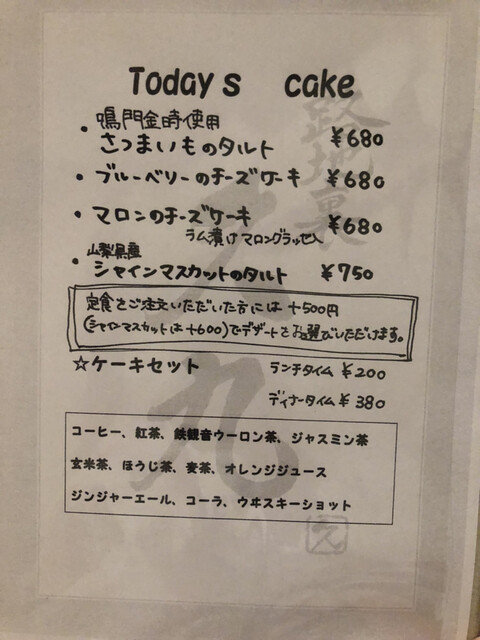 Today s cake
鳴門金時使用
・さつまいものタルト ¥680
・ブルーベリーのチーズケーキ ¥680
・マロンのチーズケーキ ¥680
ラム漬けマロングラッセ入
山梨県産
・シャインマスカットのタルト ¥750
定食をご注文いただいた方には+500円
(シャインマスカットは+600)でデザートをお選びいただけます。
☆ケーキセット ランチタイム ¥200
ディナータイム ¥380
コーヒー、紅茶、鉄観音ウーロン茶、ジャスミン茶
玄米茶、ほうじ茶、麦茶、オレンジジュース
ジンジャーエール、コーラ、ウヰスキーショット
路地裏